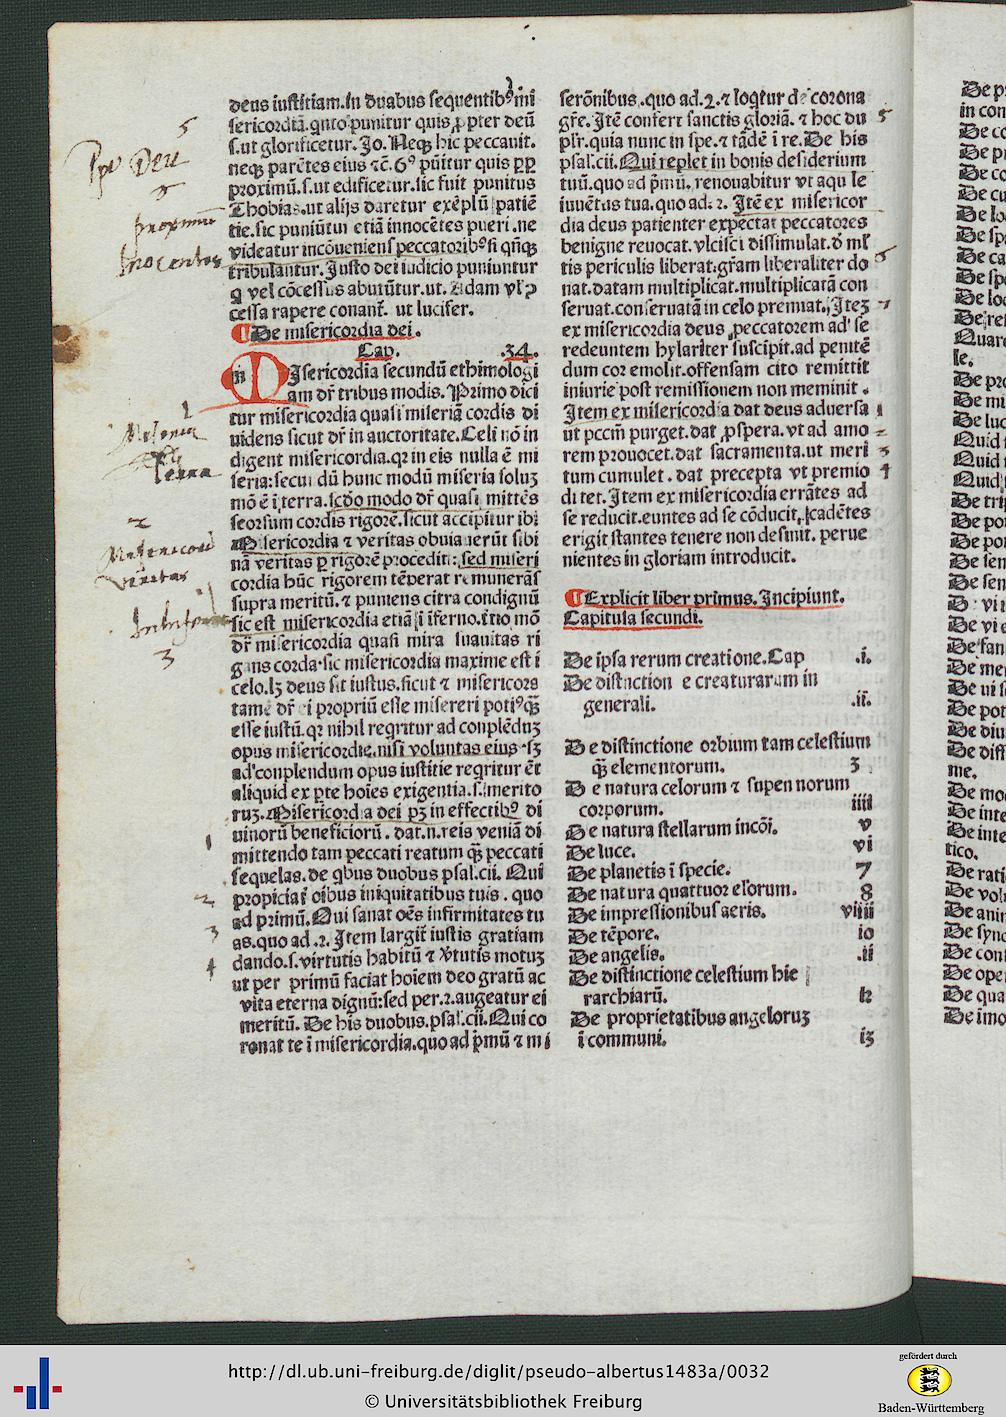 deus iustitiam.In duabus sequentibꝰ mi
sericordiā.qnto punitur quis ꝓpter deū
s.ut glorificetur. Jo. Neqꝫ hic peccauit.
neqꝫ parētes eius ⁊c̄. 6° pūitur quis ꝓp
proximū.s.ut edificetur.sic fuit punitus
Thobias.ut alijs daretur exēplū patiē
tie.sic puniūtur etiā innocētes pueri .ne
videatur incōueniens peccatoribꝰ si qñqꝫ
tribulantur. Justo dei iudicio puniuntur
q vel cōcessis abutūtur.ut. Adam vl' ꝯ
cessa rapere conant̄. ut lucifer.
De misericordia dei.
Cap. .34.
MIsericordia secundū ethimologi
am dr̄ tribus modis. Primo dici
tur misericordia quasi miseriā cordis di
uidens sicut dr̄ in auctoritate. Celi nō in
digent misericordia.qꝛ in eis nulla ē mi
seria: secundū hunc modū miseria soluꝫ
mō ē ī terra. scdo modo dr̄ quasi mittēs
seorsum cordis rigorē.sicut accipitur ibi
Misericordia ⁊ veritas obuiauerūt sibi
nā veritas ꝑ rigorē procedit: sed miseri
cordia hūc rigorem tēperat remunerās
supra meritū. ⁊ puniens citra condignū
sic est misericordia etiā ī iferno.tītio mō
dr̄ misericordia quasi mira suauitas ri
gans corda.sic misericordia maxime est ī
celo.lꝫ deus sit iustus.sicut ⁊ misericors
tamē dr̄ ei propriū esse misereri potiꝰ qꝫ̄
esse iustū.qꝛ nihil reqritur ad conplēduꝫ
opus misericordie.nisi voluntas eius .sꝫ
ad conplendum opus iustitie reqritur ēt
aliquid ex ꝑte hoīes exigentia.s.merito
ruꝫ. Misericordia dei pꝫ in effectibꝰ di
uinorū beneficiorū. dat.n.reis veniā di
mittendo tam peccati reatum qꝫ̄ peccati
sequelas.de qbus duobus psal.cii. Qui
propiciat̄ oībus iniquitatibus tuis . quo
ad primū. Qui sanat oēs infirmitates tu
as.quo ad .2. Item largit̄ iustis gratiam
dando.s.virtutis habitū ⁊ v̄tutis motuꝫ
ut per primū faciat hoīem deo gratū ac
vita eterna dignū:sed per.2.augeatur ei
meritū. De his duobus.psal.cii.Qui co
ronat te ī misericordia.quo ad p̄mū ⁊ mi
serōnibus.quo ad.2.⁊ loqtur de corona
grē. Itē confert sanctis gloriā. ⁊ hoc du
plr̄.quia nunc in spe.⁊ tādē ī re.De his
psal.cii.Qui replet in bonis desiderium
tuū.quo ad p̄mū. renouabitur vt aqu le
iuuētus tua.quo ad.2. Itē ex misericor
dia deus patienter expectat peccatores
benigne reuocat.vlcisci dissimulat.d ml'
tis periculis liberat.gr̄am liberaliter do
nat.datam multiplicat.multiplicatā con
seruat.conseruatā in celo premiat. Iteꝫ
ex misericordia deus peccatorem ad se
redeuntem hylariter suscipit.ad penitē
dum cor emolit.offensam cito remittit
iniurie post remissionem non meminit .
Item ex misericordia dat deus aduersa
ut pccm̄ purget.dat ꝓspera.vt ad amo
rem prouocet.dat sacramenta.ut meri
tum cumulet . dat precepta vt premio
ditet. Item ex misericordia errātes ad
se reducit.euntes ad se cōducit, cadētes
erigit stantes tenere non desinit. perue
nientes in gloriam introducit.
Explicit liber primus. Incipiunt.
Capitula secundi.
De ipsa rerum creatione.Cap .i.
De distinctione creaturarum in
generali. .ii.
De distinctione orbium tam celestium
qꝫ̄ elementorum. 3
De natura celorum ⁊ supernorum
corporum. iiii
De natura stellarum incōi. v
De luce. vi
De planetis ī specie. 7
De natura quattuor elorum. 8
De impressionibus aeris. viiii
De tēpore. io
De angelis. .ii
De distinctione celestium hie
rarchiarū. i2
De proprietatibus angeloruꝫ
ī communi. i3
http://dl.ub.uni-freiburg.de/diglit/pseudo-albertus1483a/0032
© Universitätsbibliothek Freiburg
gefördert durch
Baden-Württemberg